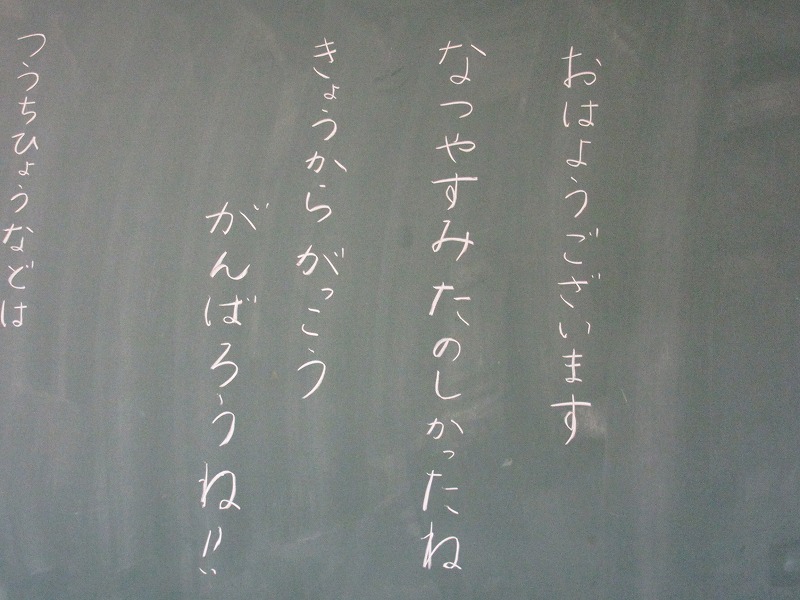 おはようございます
なつやすみたのしかったね
きょうからがっこう
がんばろうね!!
つうちひょうなどは